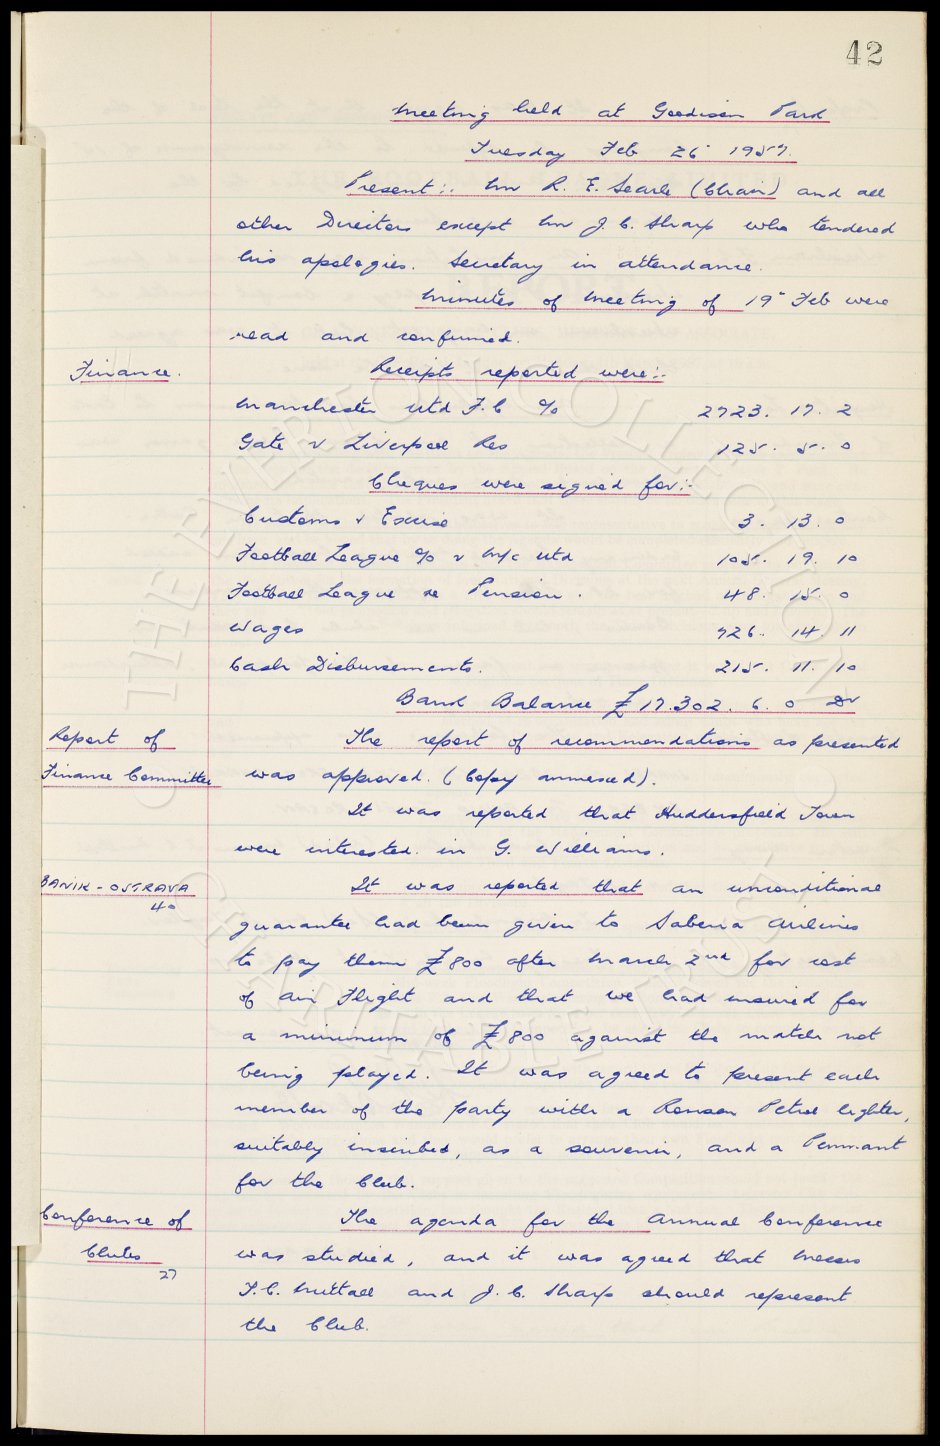 42
Meeting held at Goodison Park
Tuesday Feb 26" 1957.
Present:. Mr R. E. Searle (Chair) and all
other Directors except Mr J. C. Sharp who tendered
his apologies. Secretary in attendance.
Minutes of Meeting of 19" Feb were
read and confirmed.
Finance. Receipts reported were:-
Manchester Utd F.C % 2723. 17. 2
Gate v Liverpool Res 125. 5. 0
Cheques were signed for:-
Customs & Excise 3. 13. 0
Football League % v M/c Utd 105. 19. 10
Football League re Pension. 48. 15. 0
Wages 726. 14. 11
Cash Disbursements. 215. 11. 10
Bank Balance £17.302. 6. 0 Dr
Report of The report of recommendations as presented
Finance Committee was approved. (Copy annexed).
It was reported that Huddersfield Town
were interested in G. Williams.
BANIK - OSTRAVA It was reported that an unconditional
40
guarantee had been given to Sabena Airlines
to pay them £800 after March 2nd for cost
of Air Flight and that we had insured for
a minimum of £800 against the match not
being played. It was agreed to present each
member of the party with a Ronson Petrol lighter,
suitably inscribed, as a souvenir, and a Pennant
for the Club.
Conference of The agenda for the Annual Conference
Clubs was studied, and it was agreed that Messrs
27
F.C. Nuttall and J. C. Sharp should represent
the Club.
THE EVERTON COLLECTION
CHARITABLE TRUST